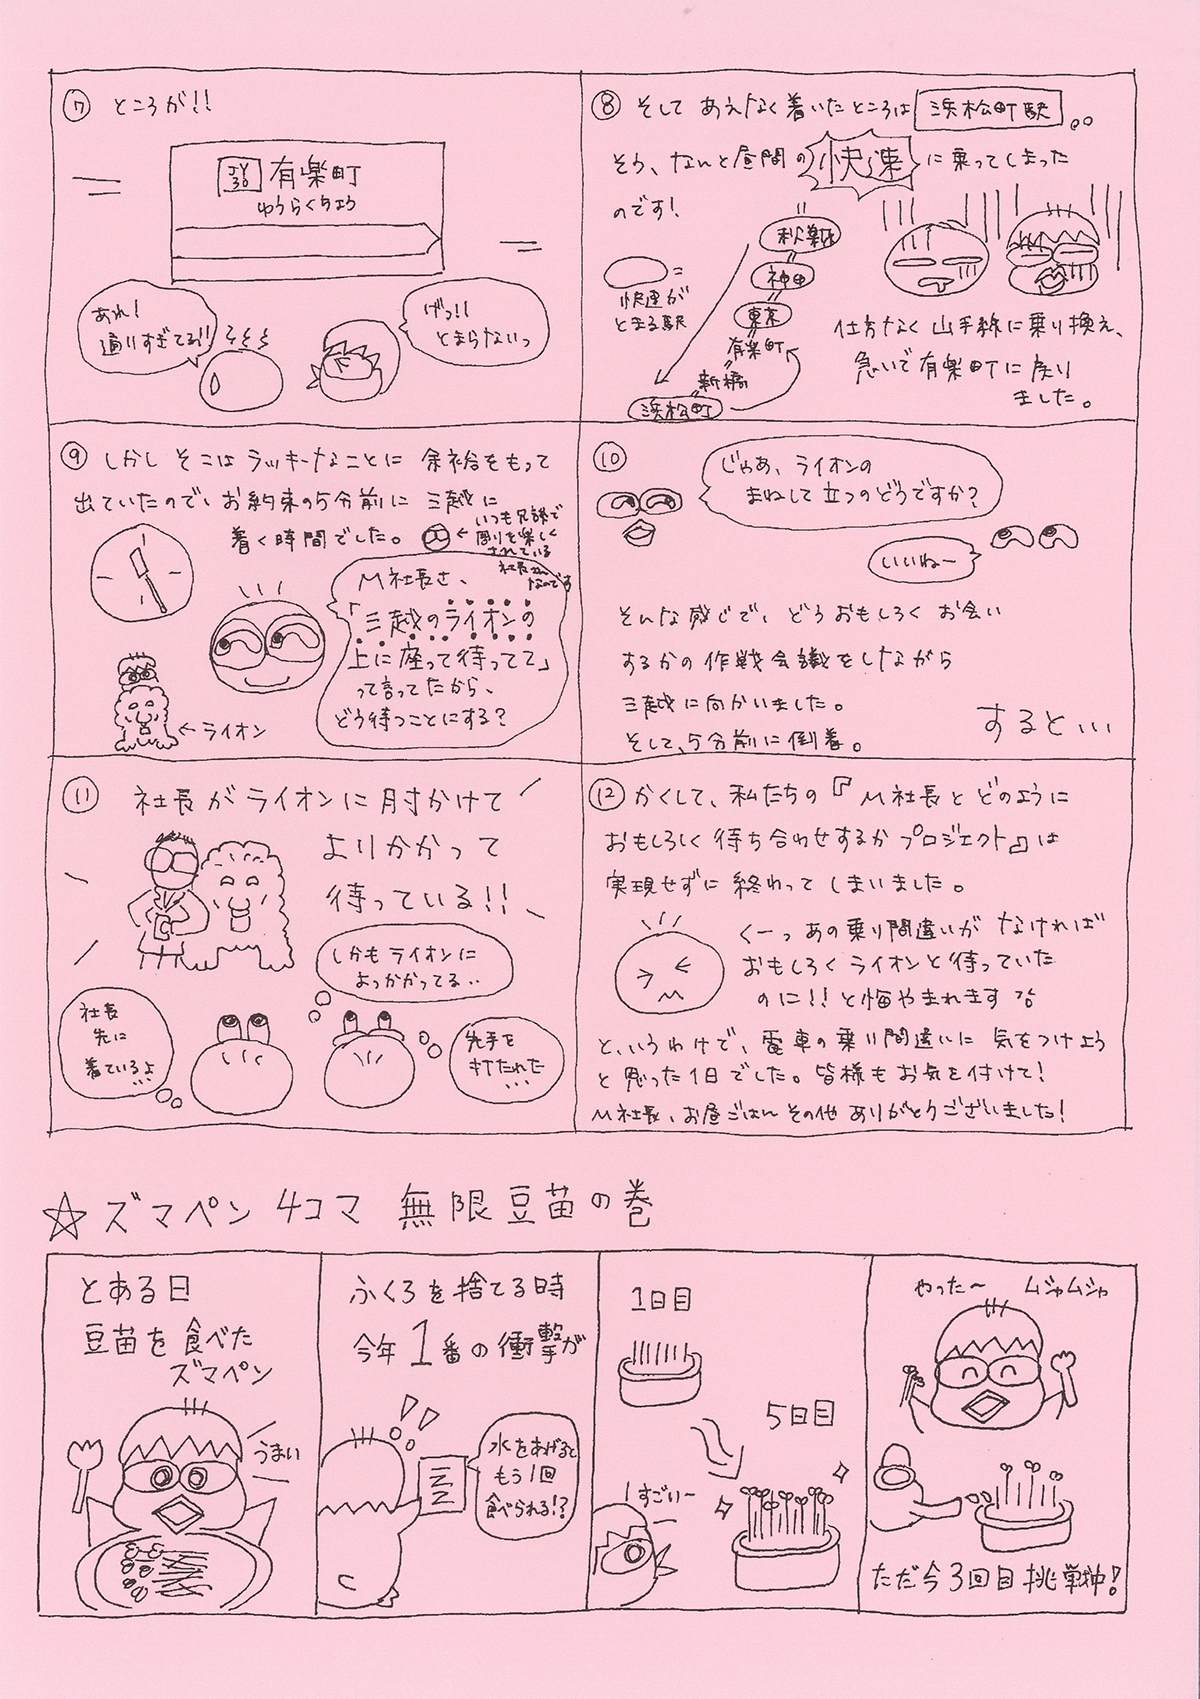 ⑦ ところが!!
JY
30
有楽町
ゆうらくちょう
あれ!
通りすぎてる!!
げっ!!
とまらないっ
⑧ そして あえなく着いたところは 浜松町駅。。
そう、なんと昼間の快速に乗ってしまった
のです!
=
快速が
とまる駅
秋葉原
神田
東京
有楽町
新橋
浜松町
仕方なく山手線に乗り換え、
急いで有楽町に戻り
ました。
⑨ しかし そこは ラッキーなことに 余裕をもって
出ていたので、お約束の5分前に 三越に
着く時間でした。
←いつも冗談で
周りを楽しく
されている
社長さん
なのです
M社長さ、
「三越のライオンの
上に座って待ってて」
って言ってたから、
どう待つことにする?
←ライオン
⑩
じゃあ、ライオンの
まねして立つのどうですか?
いいねー
そんな感じで、どうおもしろく お会い
するかの作戦会議をしながら
三越に向かいました。
そして、5分前に到着。
すると、、、
⑪ 社長がライオンに肘かけて
よりかかって
待っている!!
しかもライオンに
よっかかってる..
社長
先に
着ているよ...
先手を
打たれた
...
⑫ かくして、私たちの『M社長とどのように
おもしろく待ち合わせするかプロジェクト』は
実現せずに終わってしまいました。
くーっあの乗り間違いがなければ
おもしろくライオンと待っていた
のに!!と悔やまれます
と、いうわけで、電車の乗り間違いに気をつけよう
と思った1日でした。皆様もお気を付けて!
M社長、お昼ごはんその他ありがとうございました!
☆ズマペン 4コマ 無限豆苗の巻
とある日
豆苗を食べた
ズマペン
うまい
ふくろを捨てる時
今年1番の衝撃が
水をあげると
もう1回
食べられる!?
1日目
5日目
すごい~
やった~ ムシャムシャ
ただ今3回目挑戦中!